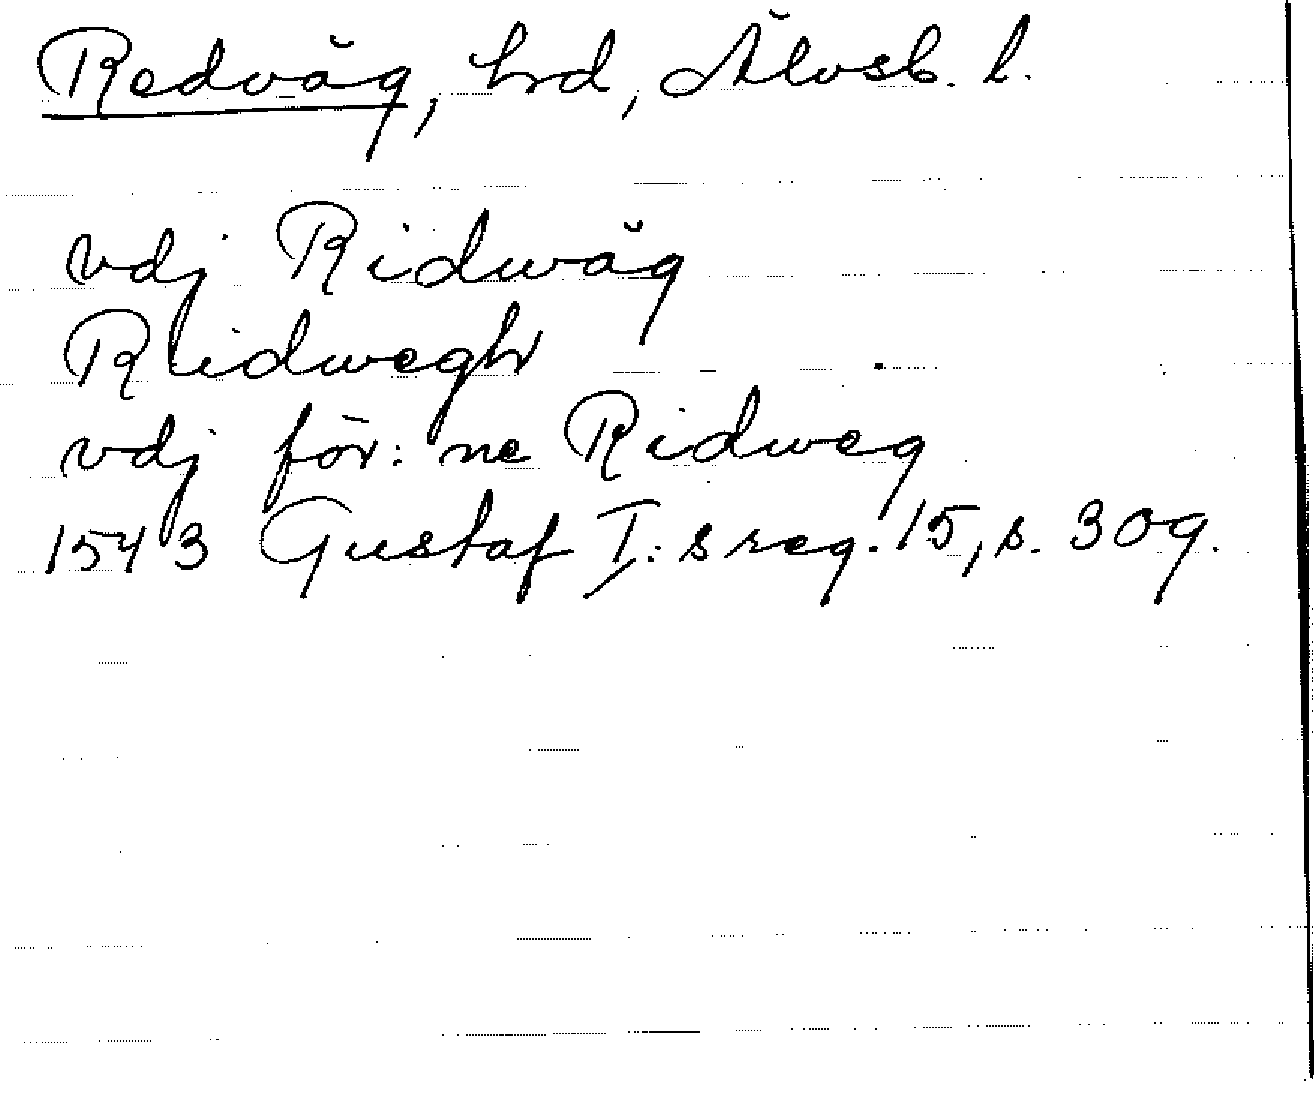 Redväg, hrd, Älvsb. l.
vdj Ridwäg
Ridwegh
vdj för: ne Ridweg
1543 Gustaf I: s reg. 15, s. 309.